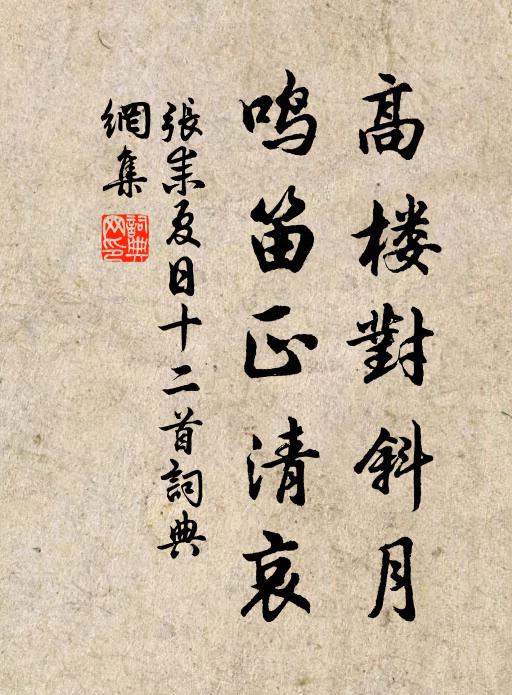 高楼對斜月
鳴笛正清哀
張耒夏日十二首詞典
網集
詞典網印